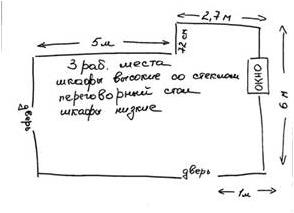 2,7 м
5 м
72 см
3 раб. места
шкафы высокие со стеклом
переговорный стол
шкафы низкие
дверь
окно
6 м
дверь
1 м